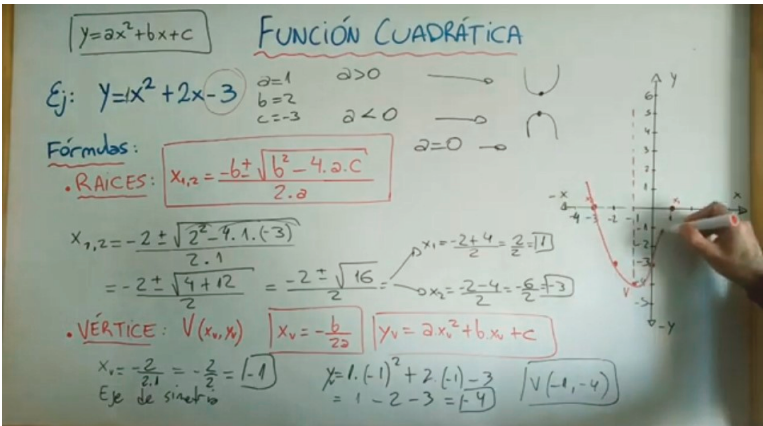 y=ax²+bx+c
FUNCIÓN CUADRÁTICA
Ej: y=1x²+2x-3
a=1
b=2
c=-3
a>0
a<0
a=0
Fórmulas:
• RAÍCES: x₁,₂ = (-b±√(b²-4.a.c))/(2.a)
x₁,₂ = (-2±√(2²-4.1.(-3)))/(2.1)
= (-2±√(4+12))/2 = (-2±√16)/2 =
x₁=(-2+4)/2=2/2=1
x₂=(-2-4)/2=-6/2=-3
• VÉRTICE: V(xᵥ,yᵥ) xᵥ=-b/2a yᵥ=a.xᵥ²+b.xᵥ+c
xᵥ=-2/2.1=-2/2=-1
Eje de simetría
y=1.(-1)²+2.(-1)-3
=1-2-3=-4
V(-1,-4)
y
6
5
4
3
2
1
-x -4 -3 -2 -1 1 x
-1
-2
-3
-5
V
-y